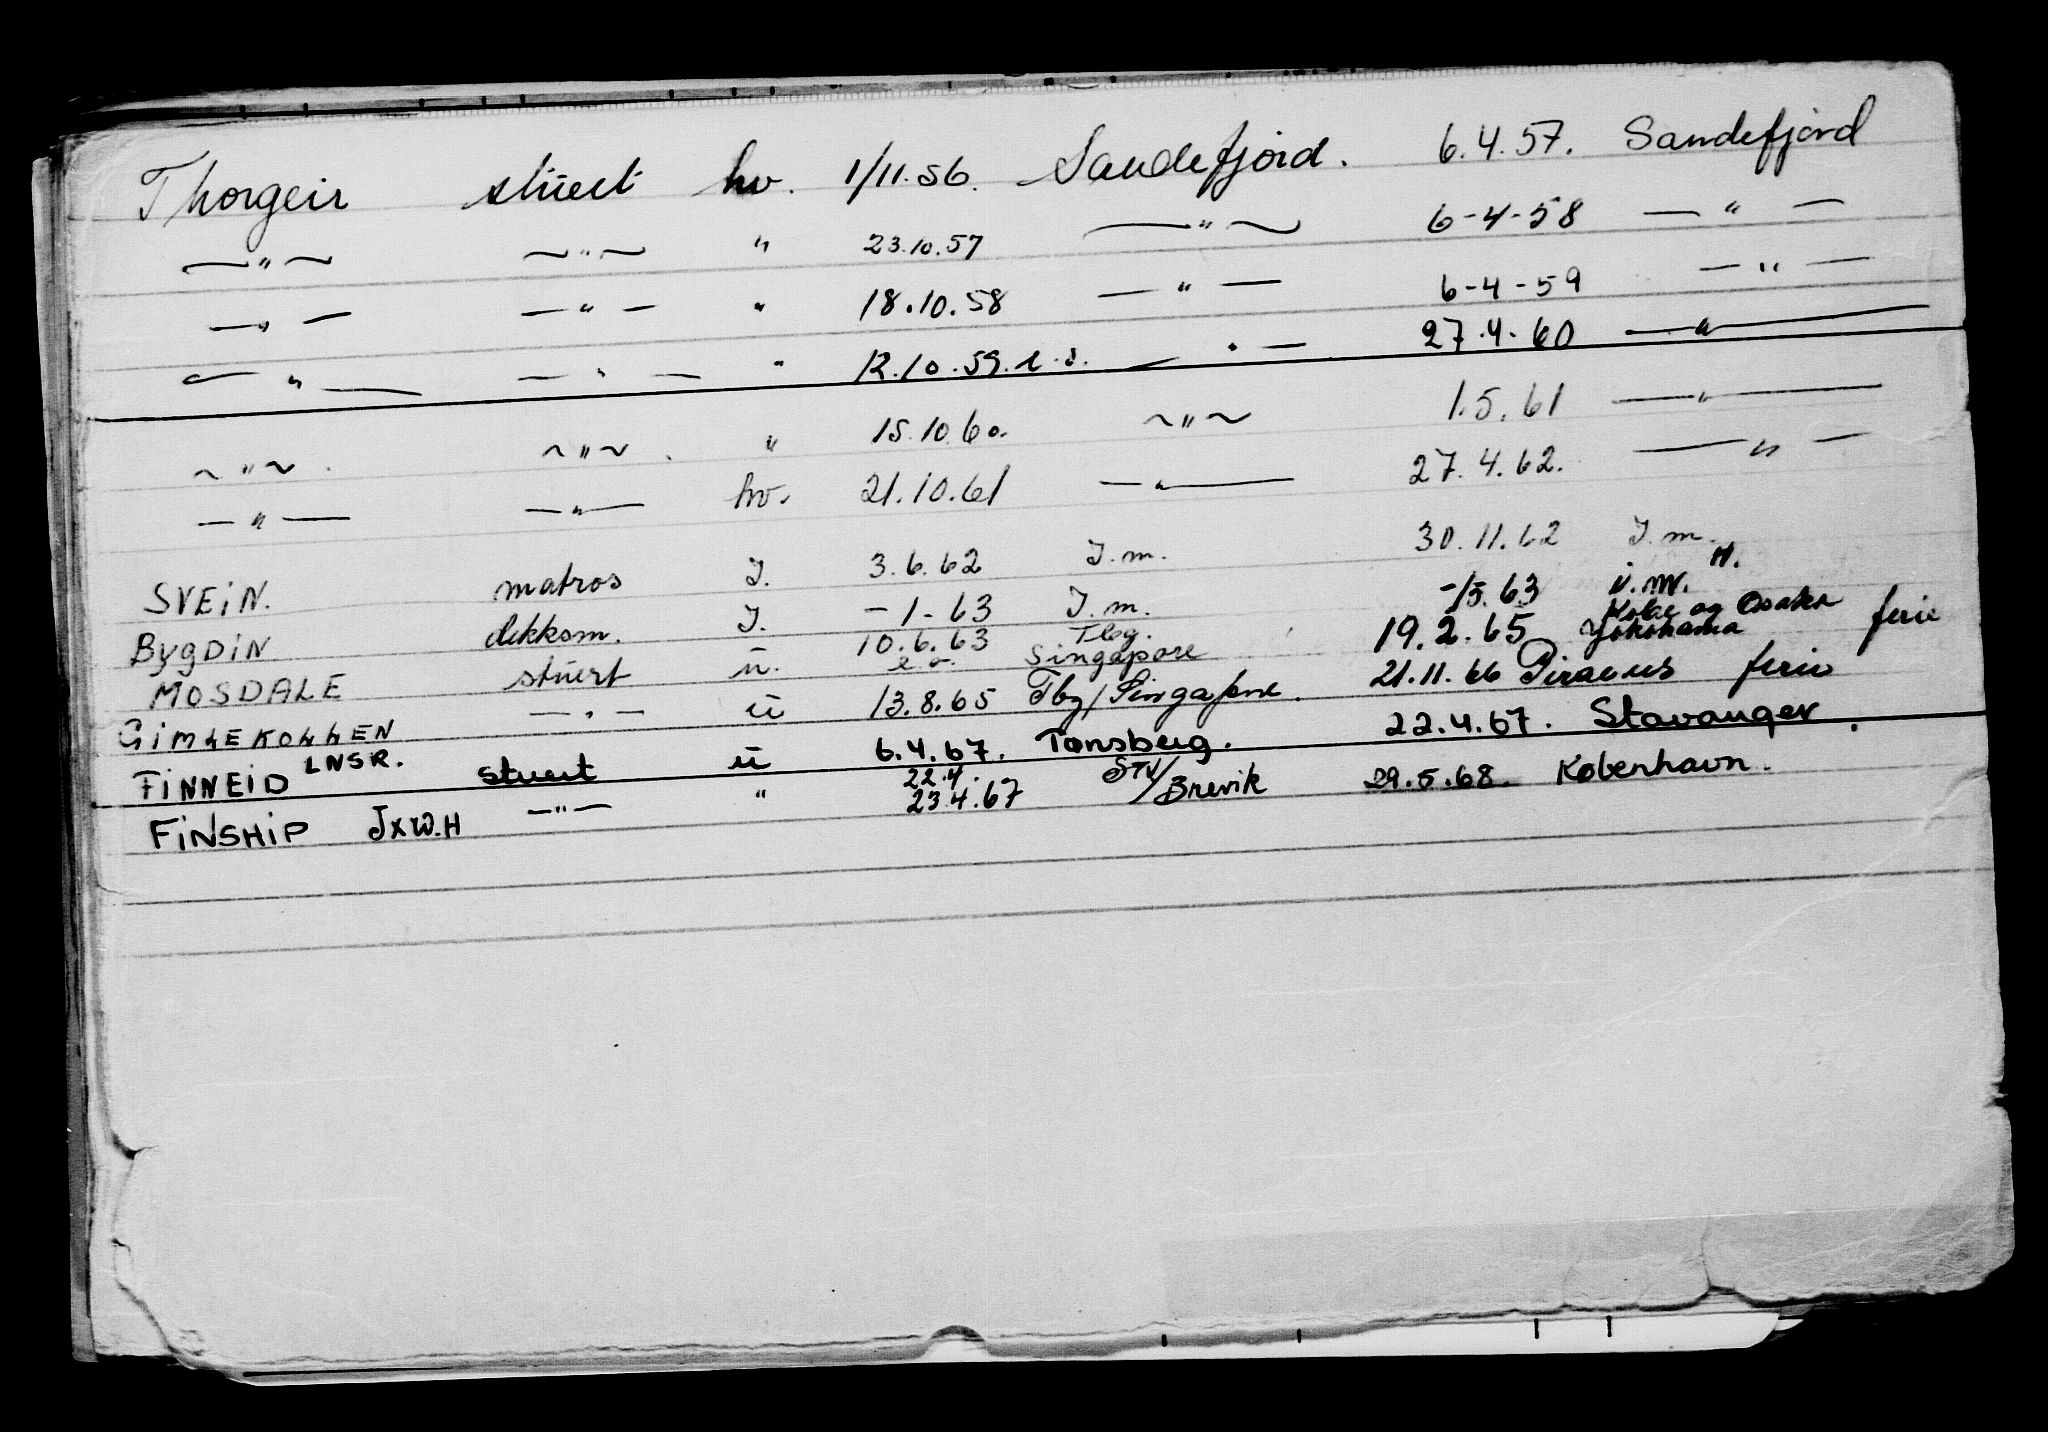 Thorgeir stuert hv. 1/11.56. Sandefjord. 6.4.57. Sandefjord
— " — — " — " 23.10.57 — " — 6-4-58 — " —
— " — — " — " 18.10.58 — " — 6-4-59 — " —
— " — — " — " 12.10.59. — " — 27.4.60 — " —
— " — — " — " 15.10.60. — " — 1.5.61 — " —
— " — — " — hv. 21.10.61 — " — 27.4.62. — " —
SVEIN. matros J. 3.6.62 J.m. 30.11.62 J.m.
BYGDIN dekksm. J. -1-63 J.m. 63
MOSDALE stuert u. 10.6.63 Tbg. Singapore 19.2.65 Kobe og Osaka Yokohama ferie
GIMLEKOLLEN — " — u 13.8.65 Tbg/Singapore. 21.11.66 Piraeus ferie
FINNEID LNSR. stuert u 6.4.67. Tønsberg. 22.4.67. Stavanger.
FINSHIP JXW.H — " — " 22.4. 23.4.67 STV/Brevik 29.5.68. København.